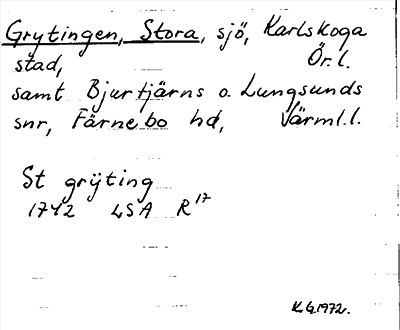 Grytingen, Stora, sjö, Karlskoga
stad, Ör.l.
samt Bjurtjärns o. Lungsunds
snr, Färnebo hd, Värml.l.
St grÿting
1742 LSA R¹⁷
K.G.1972.